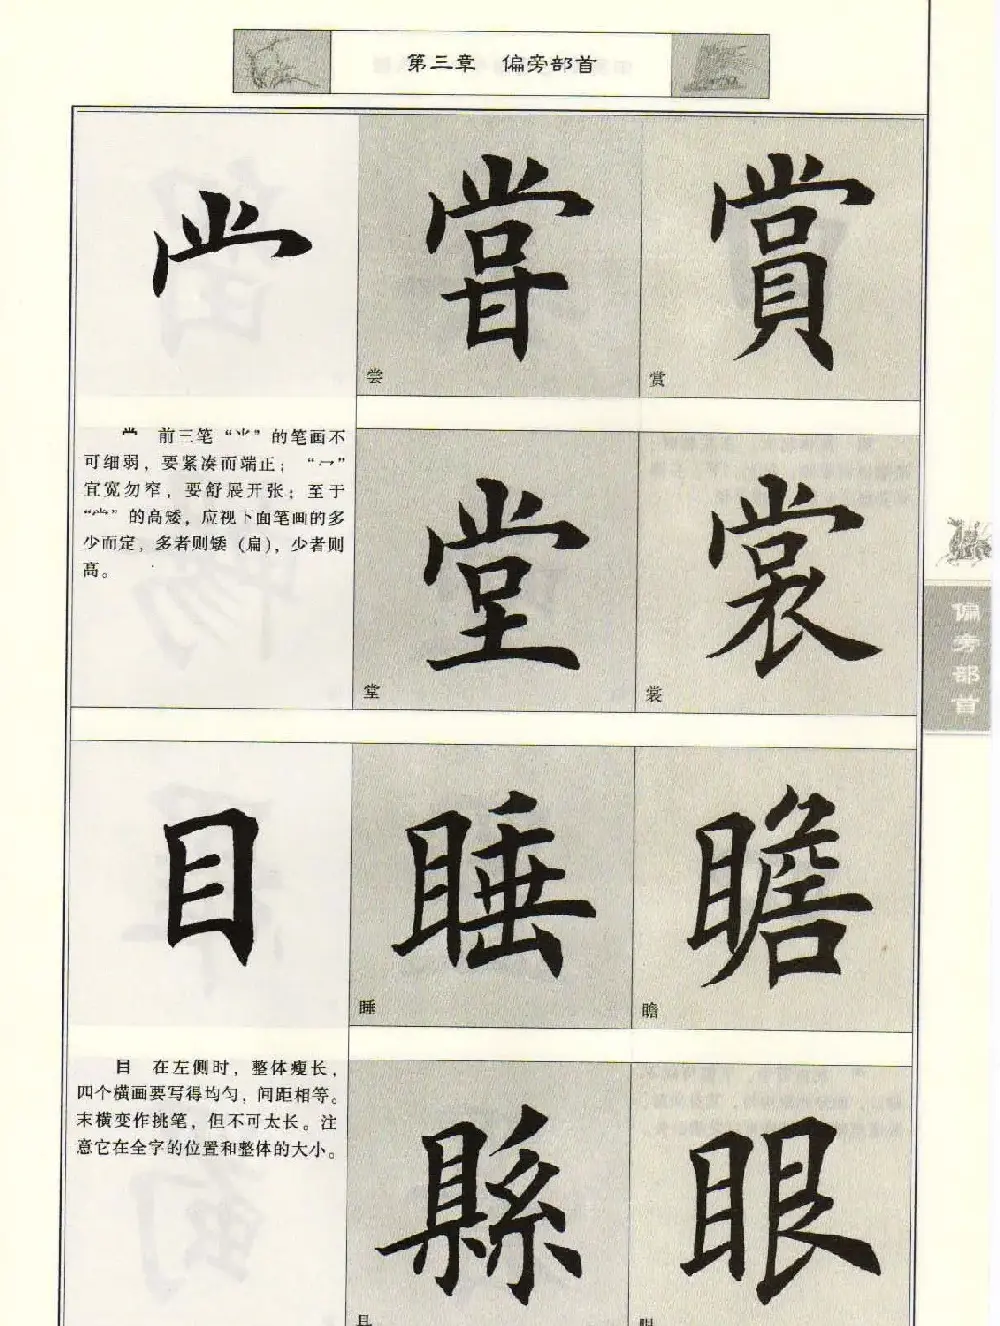 第三章 偏旁部首
嘗
賞
尝
赏
⺌ 前三笔“⺌”的笔画不
可细弱，要紧凑而端正；“冖”
宜宽勿窄，要舒展开张；至于
“𫩠”的高矮，应视下面笔画的多
少而定，多者则矮（扁），少者则
高。
堂
裳
堂
裳
偏旁部首
目
睡
瞻
睡
瞻
目 在左侧时，整体瘦长，
四个横画要写得均匀，间距相等。
末横变作挑笔，但不可太长。注
意它在全字的位置和整体的大小。
縣
眼
县
眼